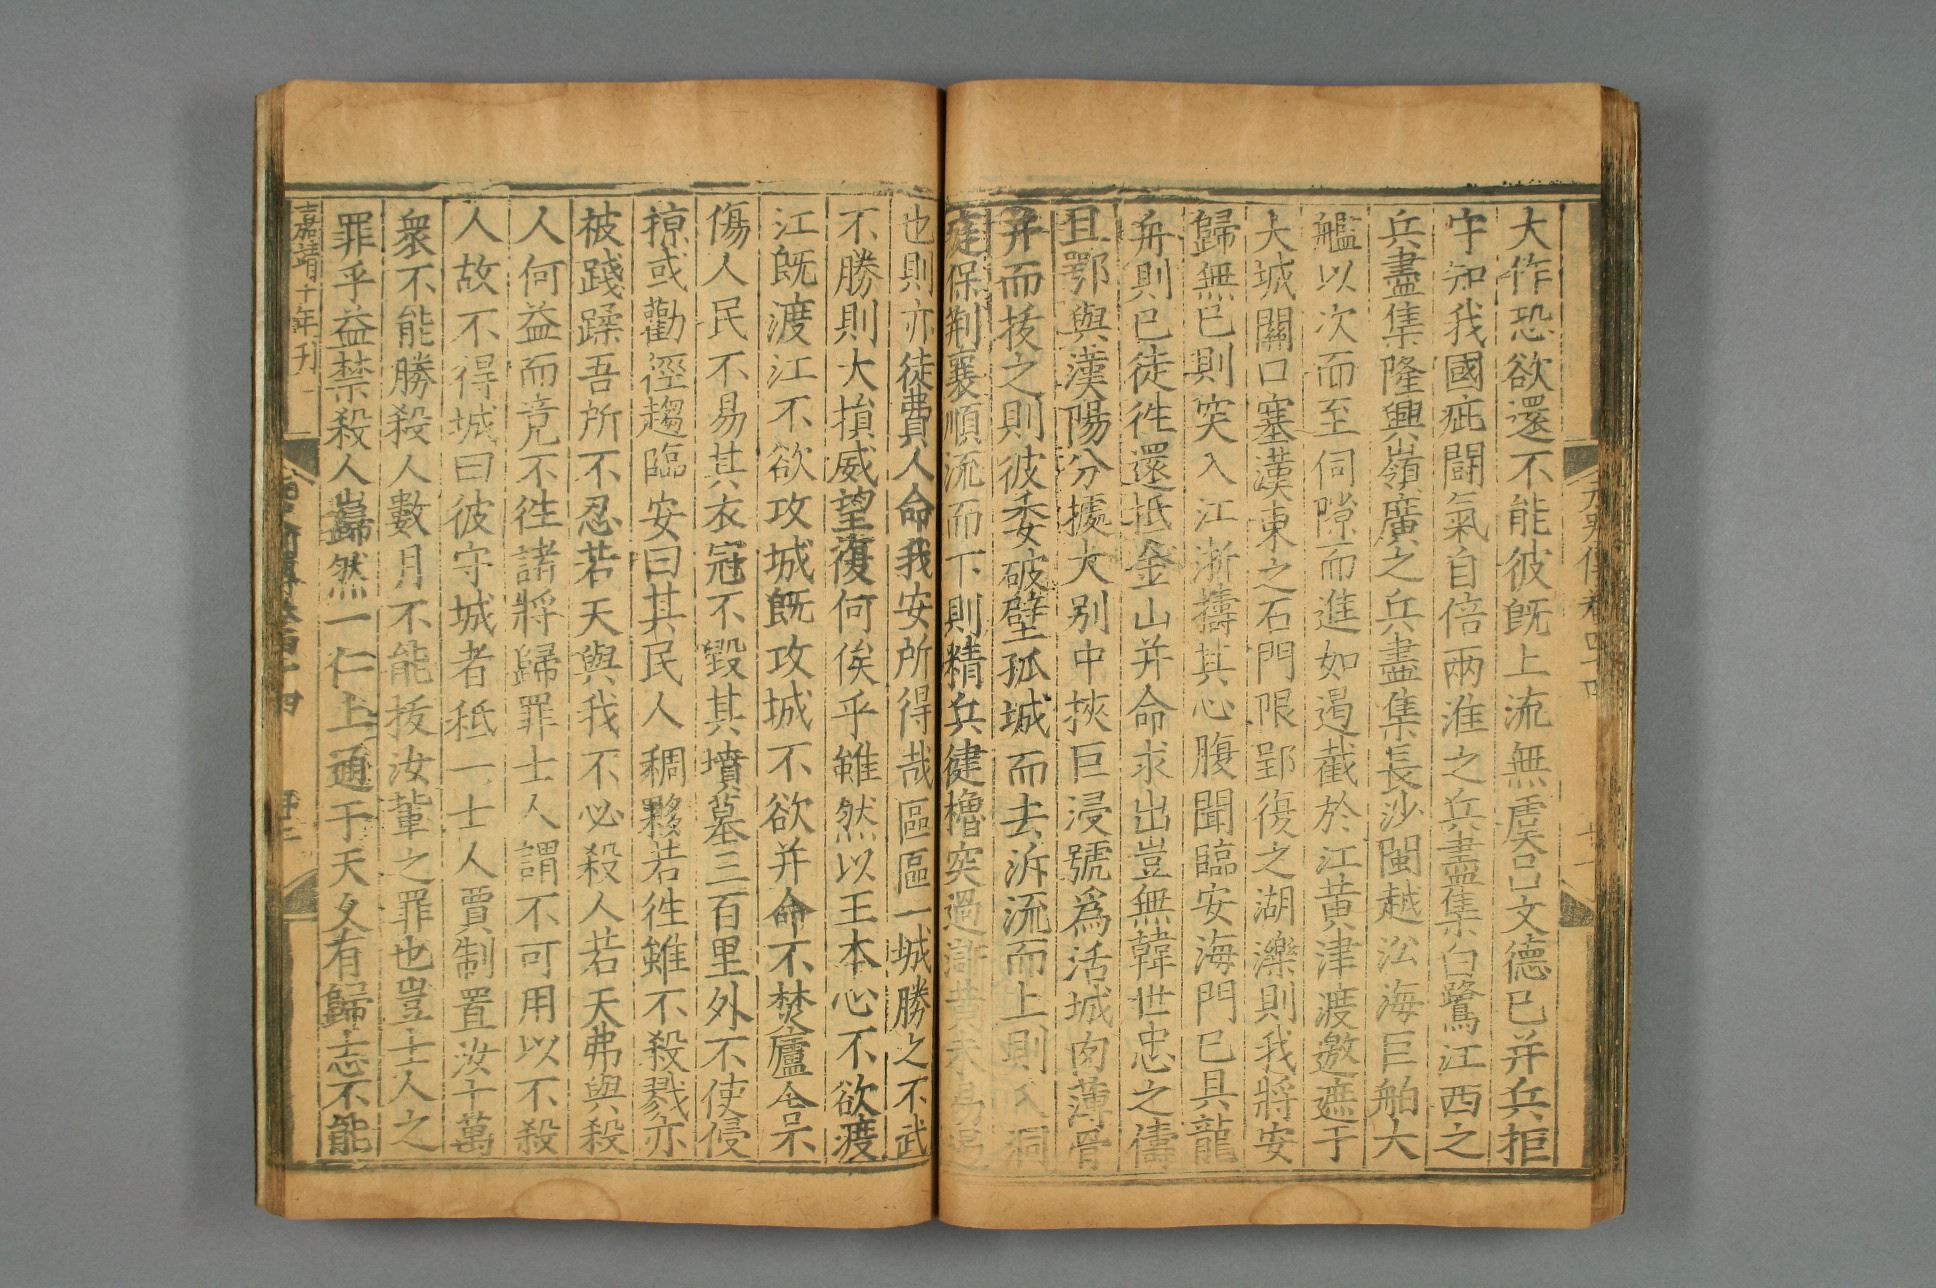 元史傳卷四十四
大作恐欲還不能彼既上流無虞呂文德已并兵拒
守知我國疵鬬氣自倍兩淮之兵盡集白鷺江西之
兵盡集隆興嶺廣之兵盡集長沙閩越沿海巨舶大
艦以次而至伺隙而進如遏截於江黄津渡邀遮于
大城關口塞漢東之石門限郢復之湖濼則我將安
歸無已則突入江浙擣其心腹聞臨安海門已具龍
舟則已徒徃還抵金山并命求出豈無韓世忠之儔
且鄂與漢陽分據大别中挾巨浸號爲活城肉薄骨
并而拔之則彼委破壁孤城而去泝流而上則入洞
庭保荆襄順流而下則精兵健櫓突過滸黄未易遏
也則亦徒費人命我安所得哉區區一城勝之不武
不勝則大損威望復何俟乎雖然以王本心不欲渡
江既渡江不欲攻城既攻城不欲并命不焚廬舍不
傷人民不易其衣冠不毁其墳墓三百里外不使侵
掠或勸徑趨臨安曰其民人稠夥若徃雖不殺戮亦
被踐蹂吾所不忍若天與我不必殺人若天弗與殺
人何益而竟不徃諸將歸罪士人謂不可用以不殺
人故不得城曰彼守城者秖一士人賈制置汝十萬
衆不能勝殺人數月不能拔汝輩之罪也豈士人之
罪乎益禁殺人巋然一仁上通于天久有歸志不能
嘉靖十年刊